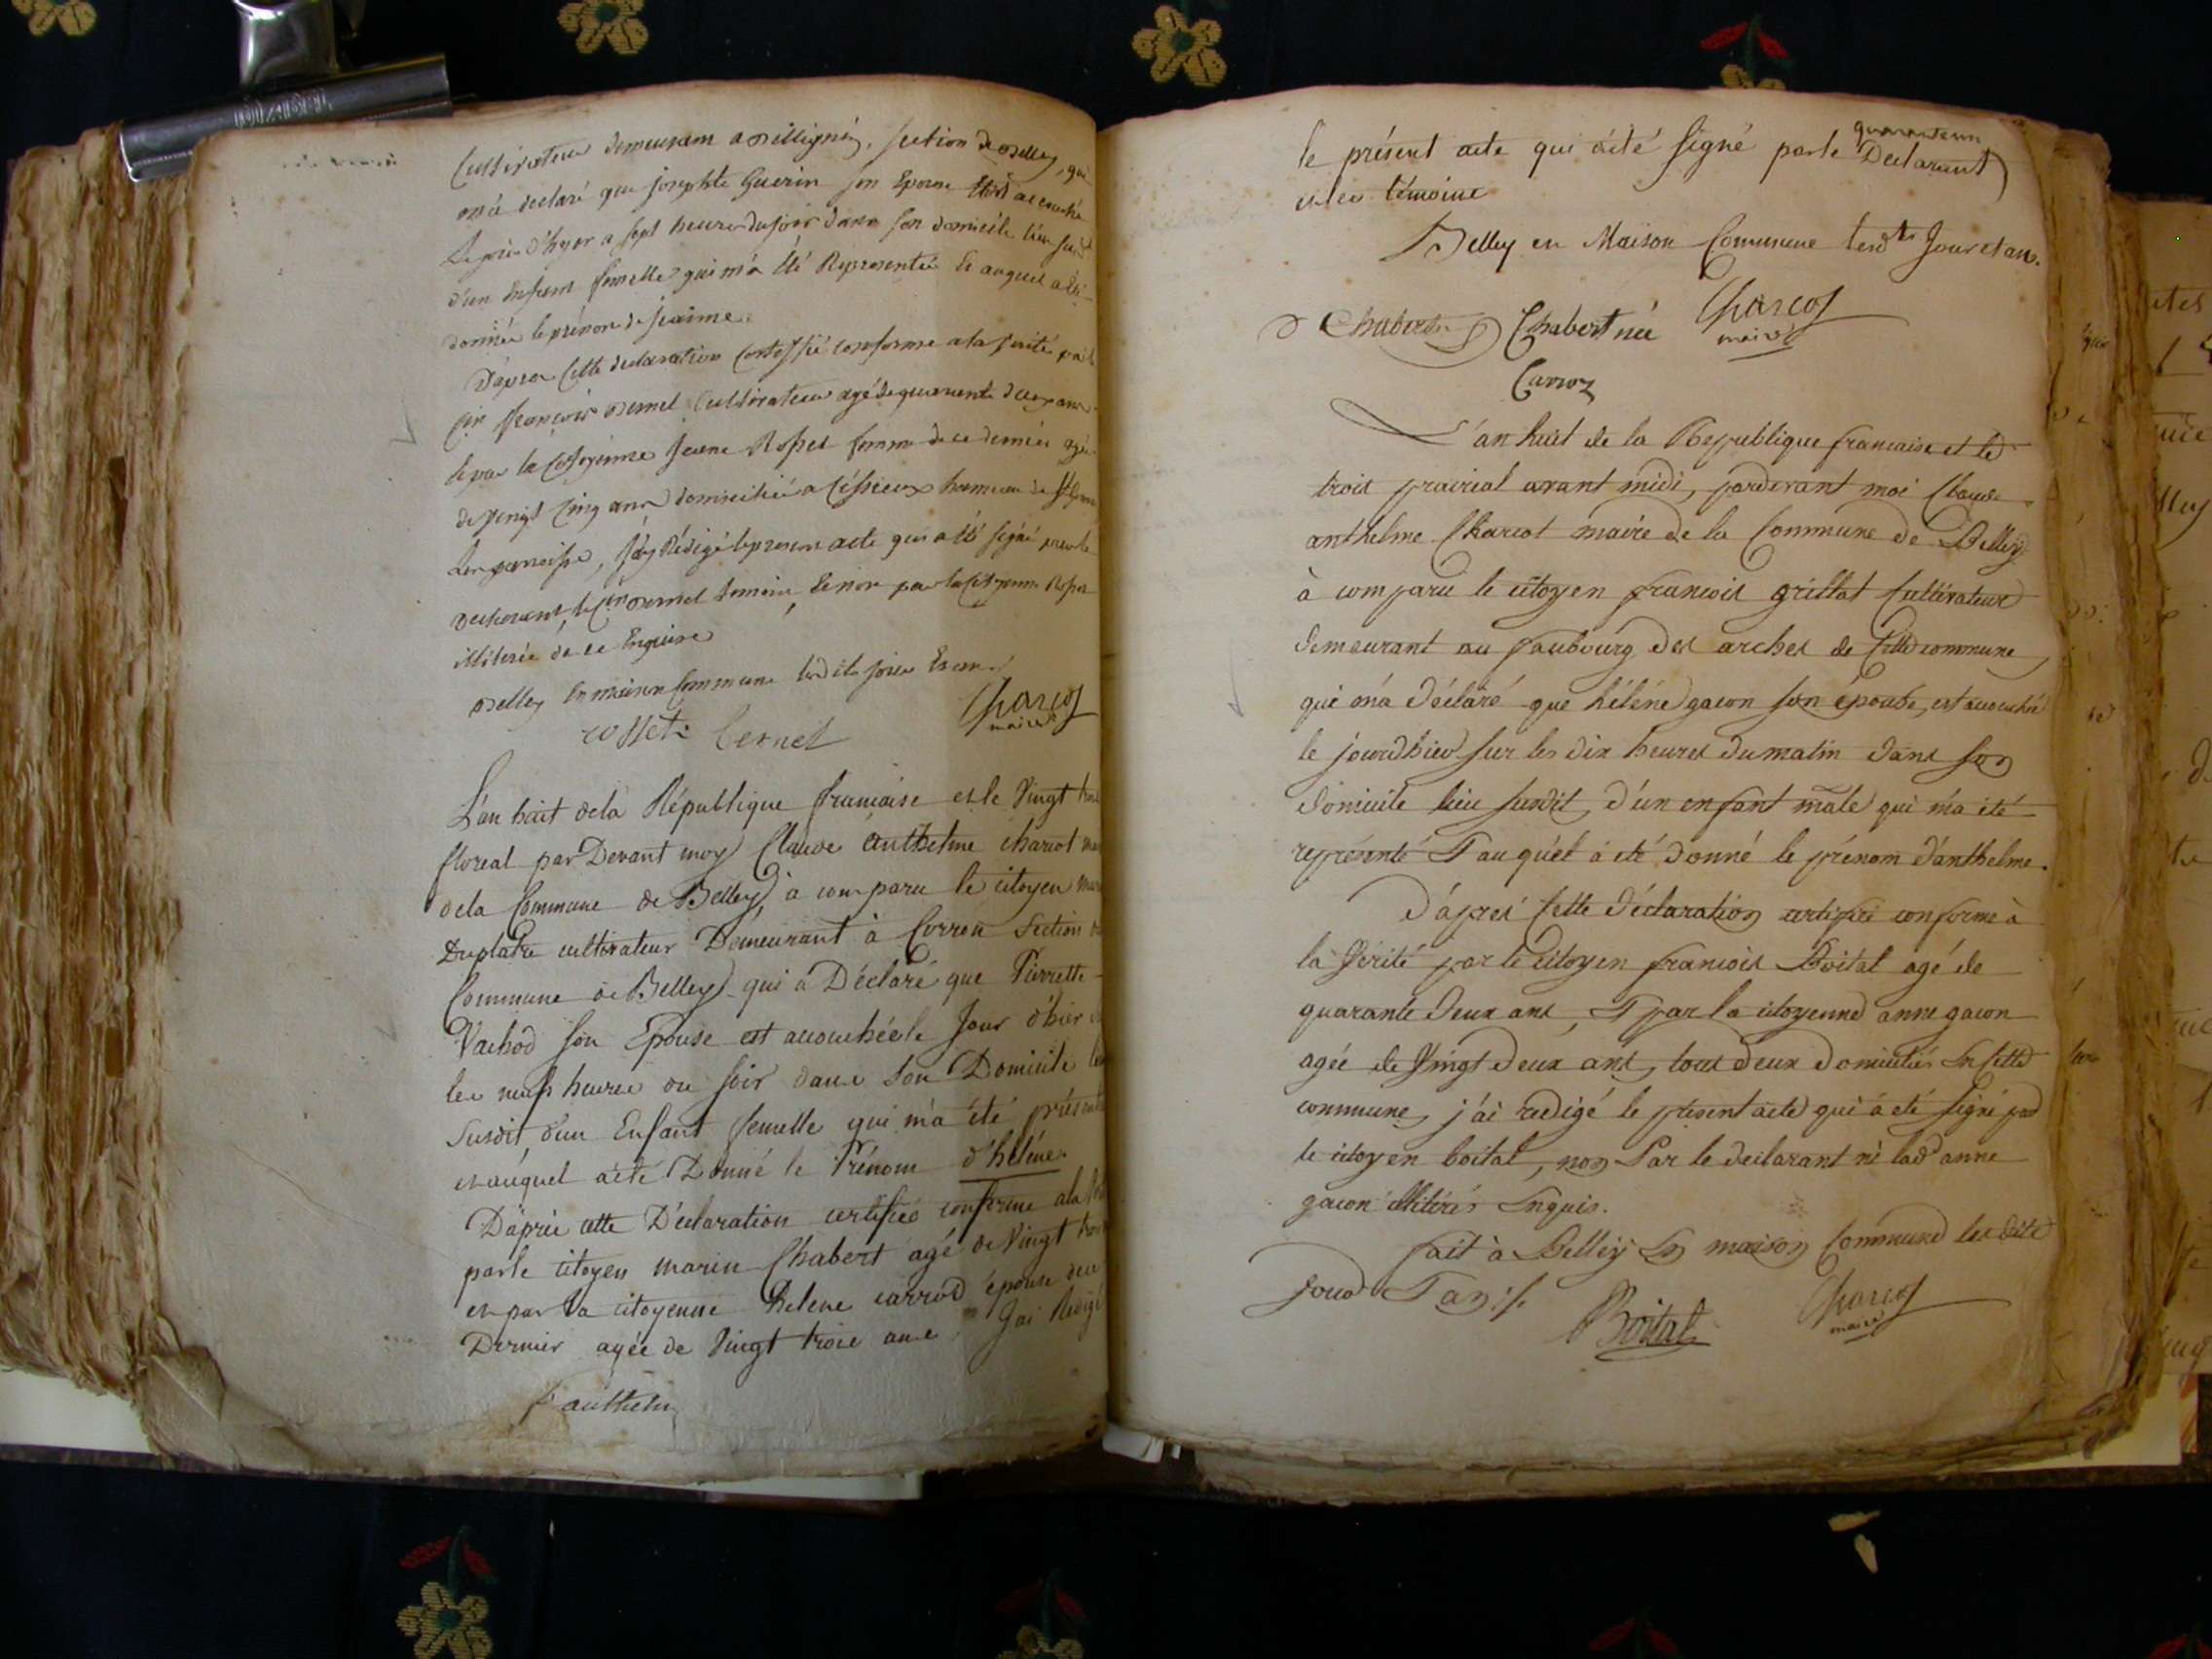 Cultivateur demeurant a Billignin, section de Belley, qui
m'a declaré que josephte Guerin son Epouse Etoit accouchée
Le jour d'hyer a sept heures du soir dans son domicile lieu susdit
d'un Enfant femelle qui m'a Eté Representée Et auquel a Eté
donnée le prénom de
D'apres Cette declaration Certiffié conforme a la verité par le
Cen françois Bernet Cultivateur agé de quarente deux ans
Et par la Citoyenne Jeanne Rosset femme de ce dernier agée
de vingt Cinq ans domiciliée a hameau de
j'ay Redigé le present acte qui a Eté signé par le
Declarant, le Cen Bernet temoin, Et non par la Citoyenne Rosset
illiterée de ce Enquise
Belley En maison Commune lesdits jour Et an.
Charcot
maire
rosset Bernet
L'an huit de la République francaise et le Vingt trois
floreal par Devant moy Claude Anthelme charcot
de la Commune de Belley, à comparu le citoyen
Duplatre cultivateur Demeurant à Corron Section
Commune de Belley qui à Déclaré que Pierrette
Vachod son Epouse est accouchée le Jour d'hier
les neuf heures du soir dans son Domicile
susdit, d'un Enfant femelle qui m'a été présenté
et auquel a été Donné le Prénom d'héléne.
D'aprés cette Déclaration certifiée conforme a la
par le citoyen marin Chabert agé de Vingt
et par la citoyenne helene carrod épouse de
Dernier agée de Vingt trois ans J'ai Redigé
le présent acte qui a été signé par le Declarant
et les témoins
Belley en Maison Commune lesdts Jour et an.
Chabert Chabert née Charcot
maire
Carroz
L'an huit de la Republique francaise et le
trois prairial avant midi, pardevant moi Claude
anthelme Charcot maire de la Commune de Belley
à comparu le citoyen francois grillat Cultivateur
demeurant au faubourg des arches de Cette commune
qui m'a déclaré que héléne gacon son épouse, est accouchée
le jourdhier sur les dix heures du matin dans son
domicile lieu susdit, d'un enfant male qui m'a été
représenté & auquel à eté donné le prénom d'anthelme.
D'après Cette déclaration certifiée conforme à
la Vérité par le citoyen francois Boital agé de
quarante deux ans, & par la citoyenne anne gacon
agée de Vingt deux ans, tous deux domiciliés En Cette
commune, j'ai redigé le présent acte qui à eté signé par
le citoyen boital, non Par le declarant ni lad anne
gacon illitérés Enquis.
fait à Belley En maison Commune les dits
jour & an ./.
Boital Charcot
maire